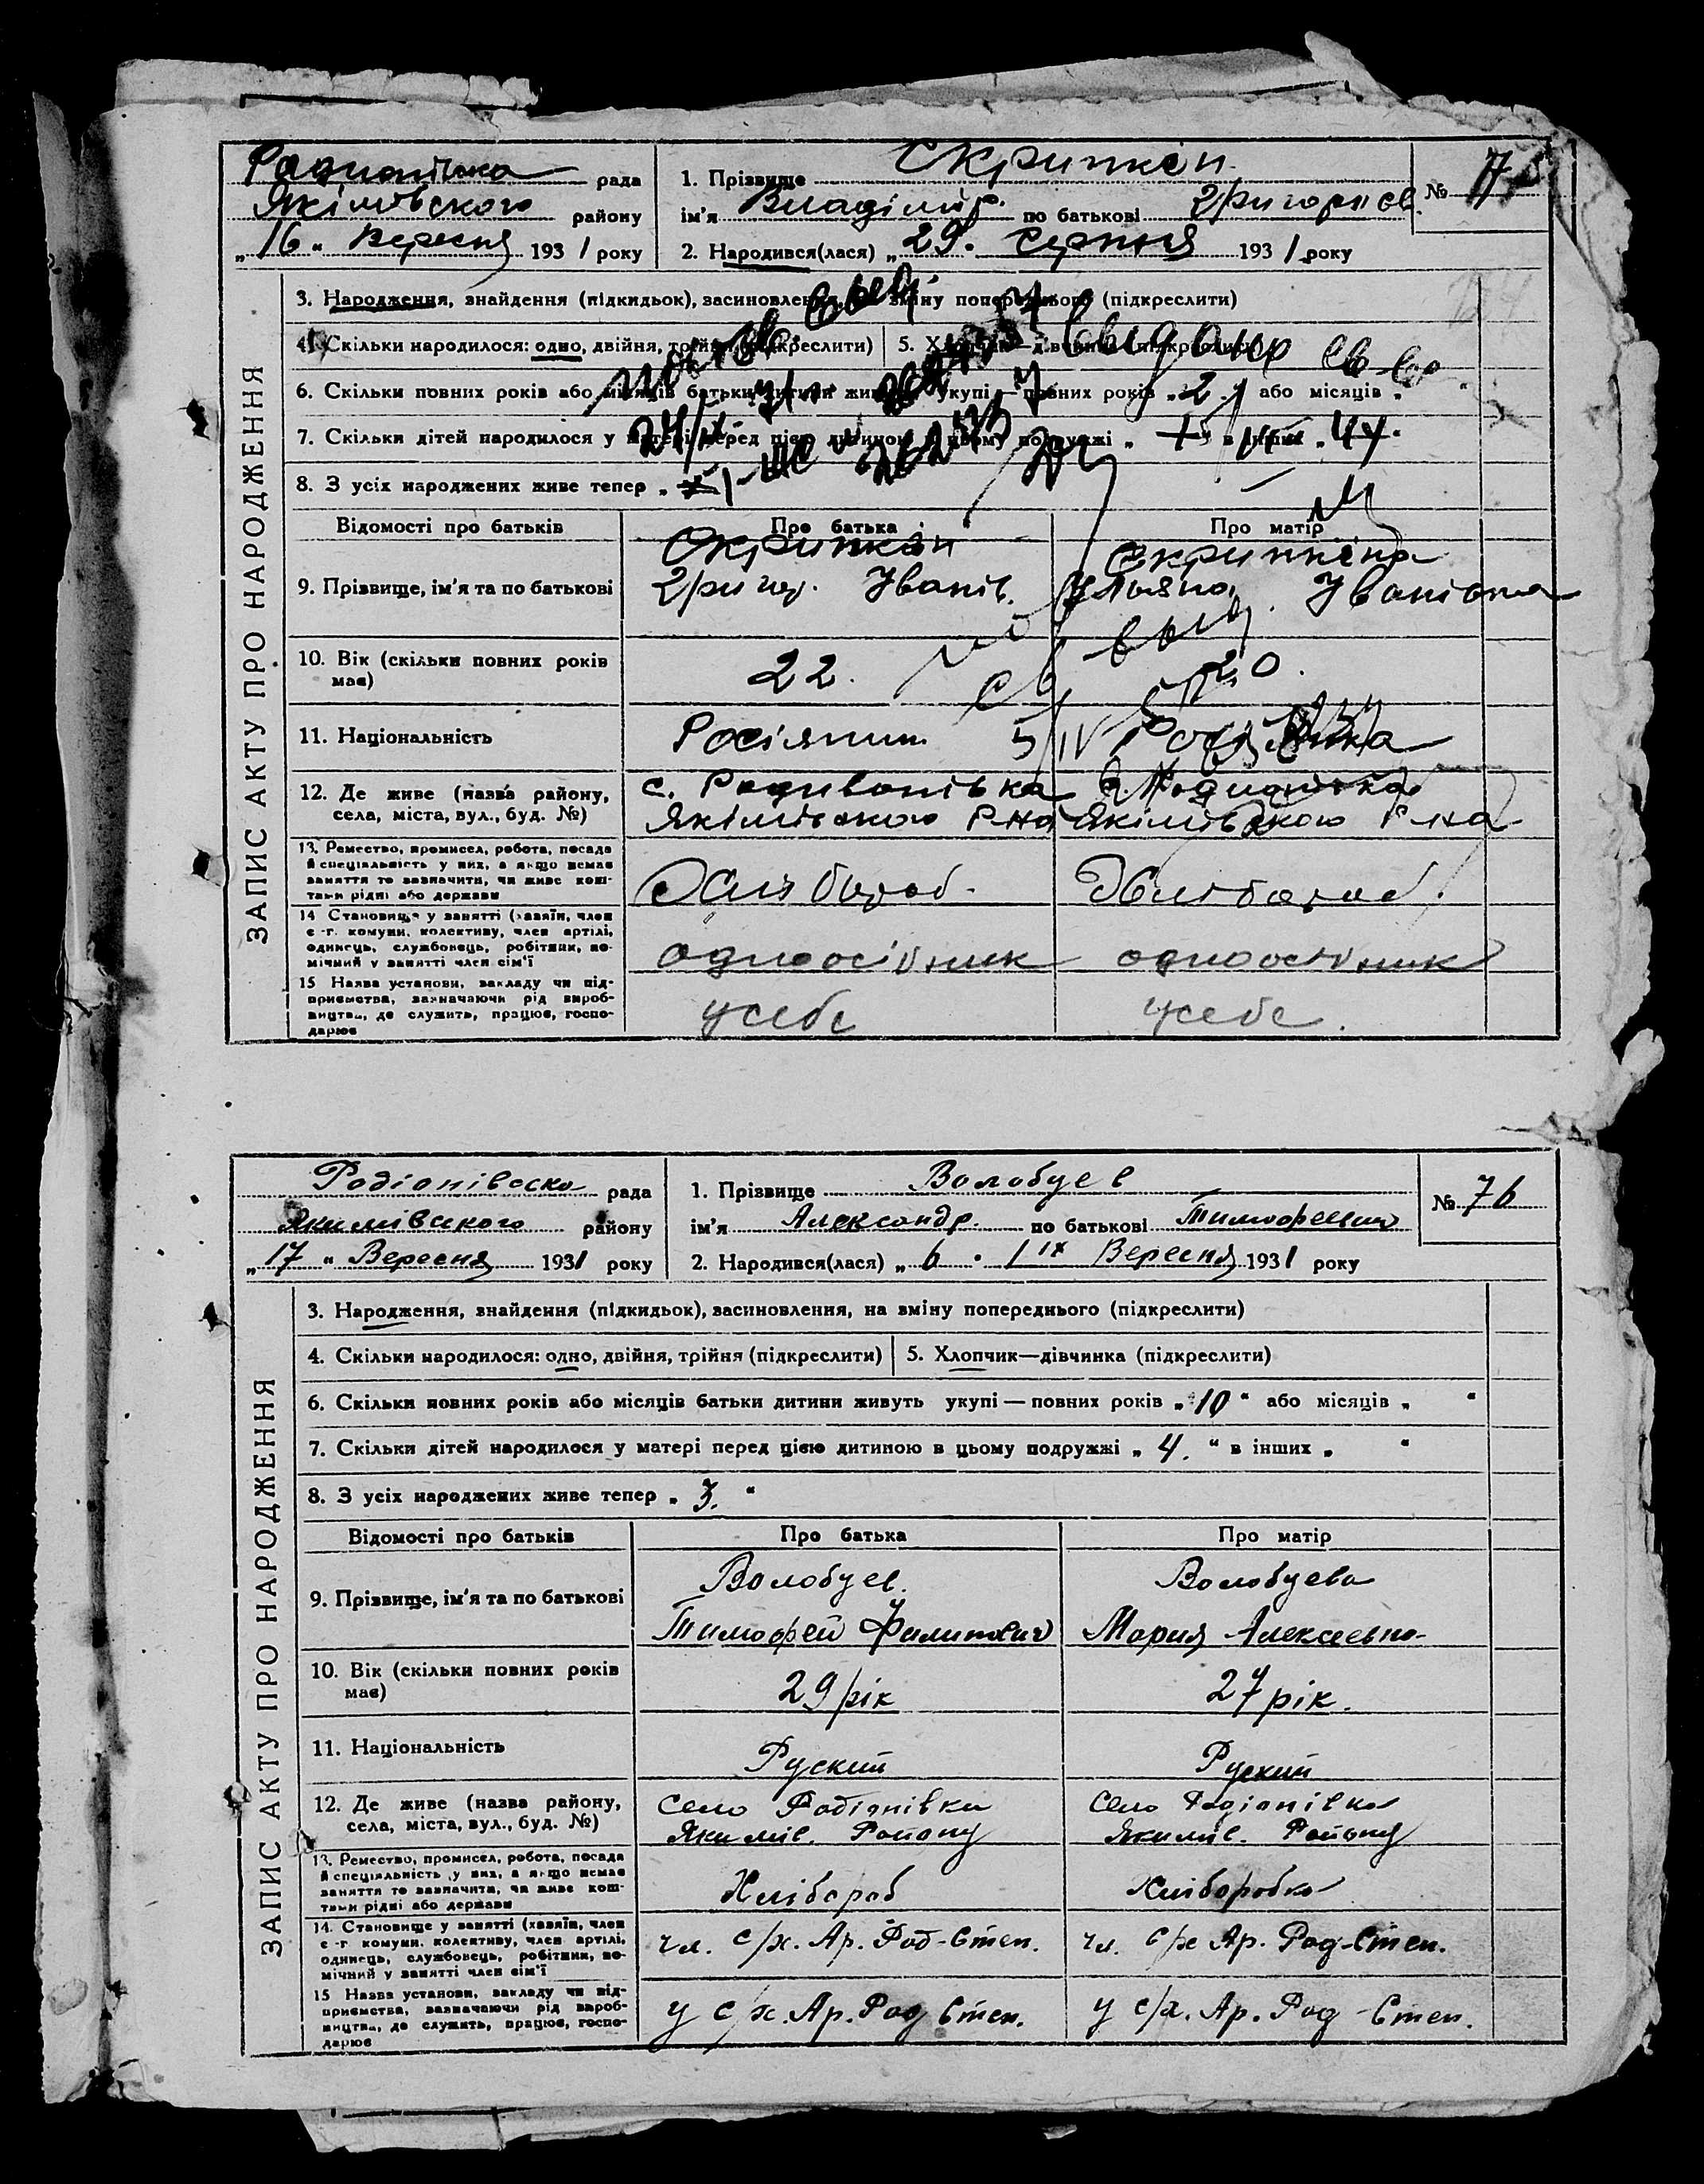 Радионівська рада
Якімовського району
„16“ Вересня 1931 року
1. Прізвище Скрипкін
ім'я Владімір по батькові Григориев.
2. Народився(лася) „29“ Серпня 1931 року
№ 75
ЗАПИС АКТУ ПРО НАРОДЖЕННЯ
3. Народження, знайдення (підкидьок), засиновлення, на зміну попереднього (підкреслити)
4. Скільки народилося: одно, двійня, трійня (підкреслити)
5. Хлопчик—дівчинка (підкреслити)
6. Скільки повних років або місяців батьки дитини живуть укупі — повних років „2“ або місяців „ “
7. Скільки дітей народилося у матері перед цією дитиною в цьому подружжі „ “ в інших „ “
8. З усіх народжених живе тепер „
Відомості про батьків Про батька Про матір
9. Прізвище, ім'я та по батькові
Скрипкін
Григор. Іванів.
Скрипкіна
Ульяна Іванівна
10. Вік (скільки повних років має)
22.
20.
11. Національність
Росіянин
Росіянка
12. Де живе (назва району, села, міста, вул., буд. №)
с. Родивонівка
Якімівського Р-на
с. Родионівка
Якімівського Р-на
13. Ремество, промисел, робота, посада
й спеціальність у них, а якщо немає
заняття то зазначити, чи живе кош-
тами рідні або держави
Хлібороб.
Хлібороб.
14 Становище у занятті (хазяїн, член
с.-г. комуни, колективу, член артілі,
одинець, службовець, робітник, по-
мічний у занятті член сім'ї
одноосібник
одноосібник
15 Назва установи, закладу чи під-
приємства, зазначаючи рід вироб-
ництва, де служить, працює, госпо-
дарює
усебе
усебе.
Родіонівська рада
Якимівського району
„17“ Вересня 1931 року
1. Прізвище Волобуев
ім'я Александр. по батькові Тимофеевич
2. Народився(лася) „6“ IX Вересня 1931 року
№ 76
ЗАПИС АКТУ ПРО НАРОДЖЕННЯ
3. Народження, знайдення (підкидьок), засиновлення, на зміну попереднього (підкреслити)
4. Скільки народилося: одно, двійня, трійня (підкреслити)
5. Хлопчик—дівчинка (підкреслити)
6. Скільки повних років або місяців батьки дитини живуть укупі — повних років „10“ або місяців „ “
7. Скільки дітей народилося у матері перед цією дитиною в цьому подружжі „4.“ в інших „ “
8. З усіх народжених живе тепер „3.“
Відомості про батьків Про батька Про матір
9. Прізвище, ім'я та по батькові
Волобуев.
Тимофей Филипович
Волобуева
Мария Алексеевна
10. Вік (скільки повних років має)
29 рік
27 рік.
11. Національність
Руский
Руский
12. Де живе (назва району, села, міста, вул., буд. №)
Село Родіонівка
Якимів. Району
Село Родіонівка
Якимів. Району
13. Ремество, промисел, робота, посада
й спеціяльність у них, а якщо немає
заняття то зазначити, чи живе кош-
тами рідні або держави
Хлібороб
Хлібороба
14. Становище у занятті (хазяїн, член
с.-г. комуни, колективу, член артілі,
одинець, службовець, робітник, по-
мічний у занятті член сім'ї
чл. с/х. Ар. Род-Степ.
чл. с/х Ар. Род-Степ.
15 Назва установи, закладу чи під-
приємства, зазначаючи рід вироб-
ництва, де служить, працює, госпо-
дарює
у с/х. Ар. Род Степ.
у с/х. Ар. Род-Степ.